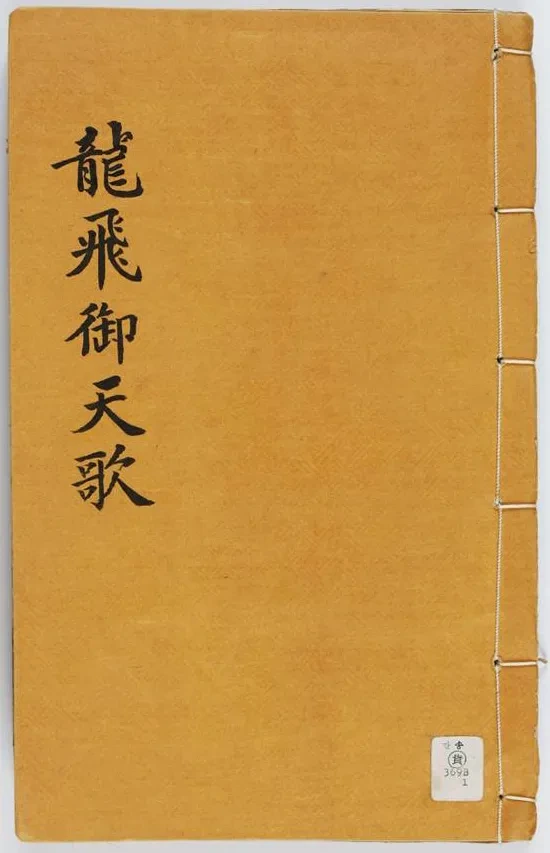 龍飛御天歌
貴
3698
1